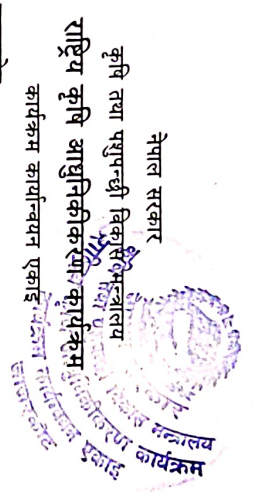 नेपाल सरकार
कृषि तथा पशुपन्छी विकास मन्त्रालय
राष्ट्रिय कृषि आधुनिकीकरण कार्यक्रम
कार्यक्रम कार्यान्वयन एकाइ
विकास मन्त्रालय
कार्यक्रम
एकाइ